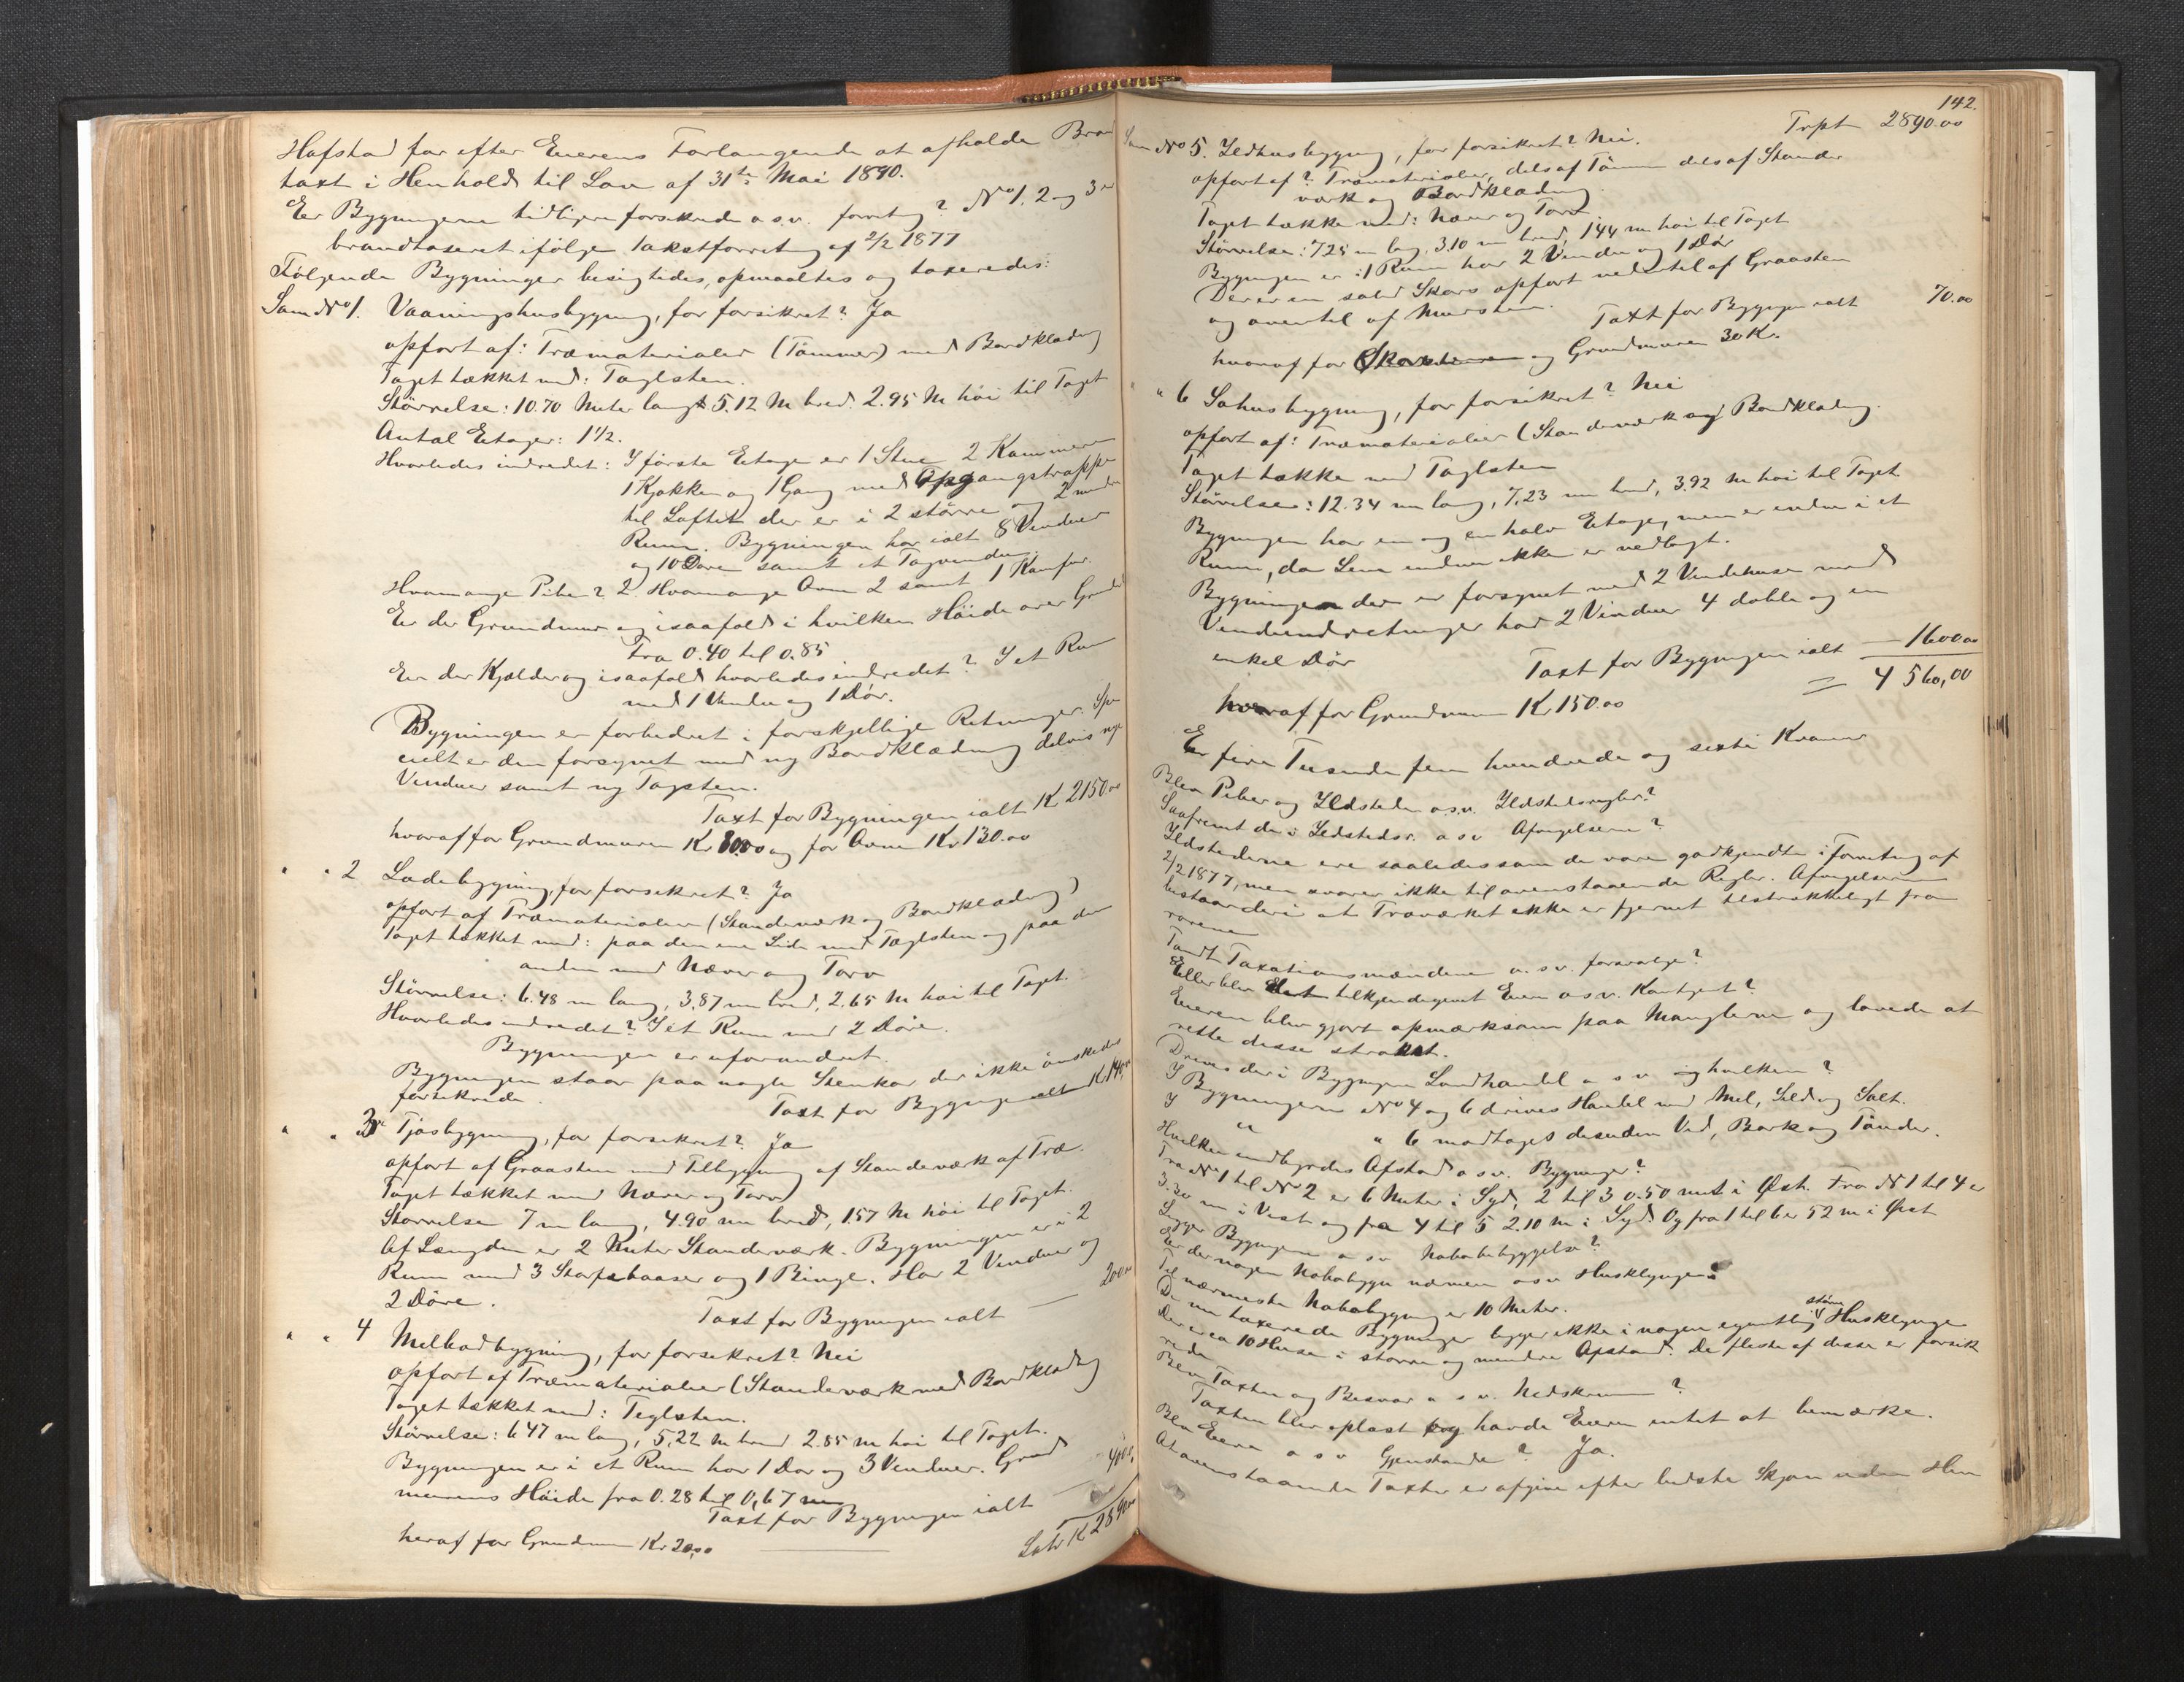 Hafstad for efter Eierens Forlangende at afholde Bran
taxt i Henhold til Lov af 31te Mai 1890.
Er Bygningerne tidligere forsikrede o.s.v. forretng? No 1, 2 og 3 er
brandtaxeret ifølge Takstforretng af 2/2 1877
Følgende Bygninger besigtedes, opmaaltes og taxeredes:
Sam No 1. Vaaningshusbygning, før forsikret? Ja
opført af: Træmaterialer (Tømmer) med Bordklædng
Taget tækket med: Taglsten.
Størrelse: 10.70 Meter langt 5.12 M bred. 2.95 M høi til Taget
Antal Etager: 1 1/2.
Hvorledes indredet: I første Etage er 1 Stue 2 Kammere
1 Kjøkken og 1 Gang med Opgangstrappe
til Loftet der er i 2 større og 2 mindre
Rum. Bygningen har ialt 8 Vinduer
og 10 Døre samt et Tagvindu.
Hvormange Piber? 2. Hvormange Ovne 2 samt 1 Komfur.
Er der Grundmur og isaafald i hvilken Høide over Grund
Fra 0.40 til 0.85
Er der Kjelder og isaafald hvorledes indredet? I et Rum
med 1 Vindu og 1 Dør.
Bygningen er forbedret i forskjellige Retninger. Spe
cielt er den forsynet med ny Bordklædning delvis nye
Vinduer samt ny Tagsten.
Taxt for Bygningen ialt K 2150.00
hvoraf for Grundmuren Kr 80.00 og for Ovne Kr 130.00
" " 2 Ladebygning, før forsikret? Ja
opført af Træmaterialer (Standeværk og Bordklædng)
Taget tækket med: paa den ene Side med Taglsten og paa den
anden med Næver og Torv
Størrelse: 6.48 m lang, 3.87 m bred, 2.65 M høi til Taget.
Hvorledes indredet? I et Rum med 2 Døre.
Bygningen er uforandret.
Bygningen staar paa nogle Stenkar der ikke ønskedes
forsikrede.
Taxt for Bygnge ialt K 140,00
" " 3 Fjøsbygning, før forsikret? Ja
opført af Graasten med Tilbygning af Standeværk af Træ.
Taget tækket med Næver og Torv
Størrelse 7 m lang, 4.90 m bred, 1.57 M høi til Taget.
Af Længden er 2 Meter Standeværk. Bygningen er i 2
Rum med 3 Storfebaaser og 1 Binge. Har 2 Vinduer og
2 Døre.
Taxt for Bygningen ialt — 200.00
" " 4 Melbodbygning, før forsikret? Nei
opført af Træmaterialier (Standeværk med Bordklædng
Taget tækket med: Teglsten.
Størrelse: 6.47 m lang, 5,22 M bred 2.85 m høi til Taget.
Bygningen er i et Rum har 1 Dør og 3 Vinduer. Grund
murens Høide fra 0.28 til 0,67 m
Taxt for Bygningen ialt — 400.00
heraf for Grundmur Kr 20,00
Lats K 2890.00
142.
Trpt 2890.00
Sam No 5. Ildhusbygning, før forsikret? Nei.
opført af? Træmaterialer, dels af Tømmer dels af Stander
værk og Bordklædning.
Taget tækket med: Næver og Torv
Størrelse: 7.25 m lang, 3.10 m bred, 1.44 m høi til Taget
Bygningen er i 1 Rum har 2 Vinduer og 1 Dør
Der er en solid Skors opført nedentil af Graasten
og oventil af Mursten.
Taxt for Bygngen ialt 70.00
hvoraf for Skorstenen og Grundmuren 30 Kr.
" 6 Søhusbygning, før forsikret? Nei
opført af: Træmaterialier (Standeværk og Bordklædng.
Taget tækket med Taglsten
Størrelse: 12.34 m lang, 7,23 m bred, 3.92 M høi til Taget.
Bygningen har en og en halv Etage, men er endnu i et
Rum, da Lem endnu ikke er nedlagt.
Bygningen der er forsynet med 2 Vindehuse med
Vindeindretninger har 2 Vinduer 4 doble og en
enkel Dør
Taxt for Bygningen ialt — 1600.00
hvoraf for Grundmur K 150.00
= 4560,00
Er fire Tusende fem hundrede og sexti Kroner
Blev Piber og Ildsteder o.s.v. Ildstedsregler?
Saafremt der i Ildstedsr. o s v Afvigelserne?
Ildstederne ere saaledes som de vare godkjendte i Forretng af
2/2 1877, men svarer ikke til ovenstaaende Regler. Afvigelserne
bestaar deri at Træværket ikke er fjernet tilstrækkeligt fra
rørene
Fandt Taxationsmændene o.s.v. forsvarlige?
Eller blev det tilkjendegivet Eieren o s v. Kontrjent?
Eieren blev gjort opmærksom paa Manglerne og lovede at
rette disse strakst.
Drives der i Bygngen Landhandel o s v og hvilken?
I Bygningerne No 4 og 6 drives Handel med Mel, Sild og Salt.
I " " 6 modtages desuden Ved, Bark og Tønder.
Hvilken indbyrdes Afstand o s v. Bygninger?
Fra No 1 til No 2 er 6 Meter i Syd, 2 til 3 0.50 met i Øst. Fra No 1 til 4 er
3.30 m i Vest og fra 4 til 5 2.10 M i Syd. Og fra 1 til 6 er 52 m i Øst
Ligger Bygngene o s v Nabobebyggelse?
Er der nogen Nabobygn nærmere o s v Husklynger?
Til nærmeste Nabobygng er 10 Meter.
De nu taxerede Bygninger ligger ikke i nogen egentlig større Husklynge
Der er ca 10 Huse i større og mindre Afstand. De fleste af disse er forsik
rede
Blev Taxten og Besvar o s v. Nedskrivn?
Taxten blev oplæst og havde Eieren intet at bemærke.
Blev Eieren o s v Gjenstande? Ja.
At ovenstaaende Taxter er afgivne efter bedste Skjøn uden Hen